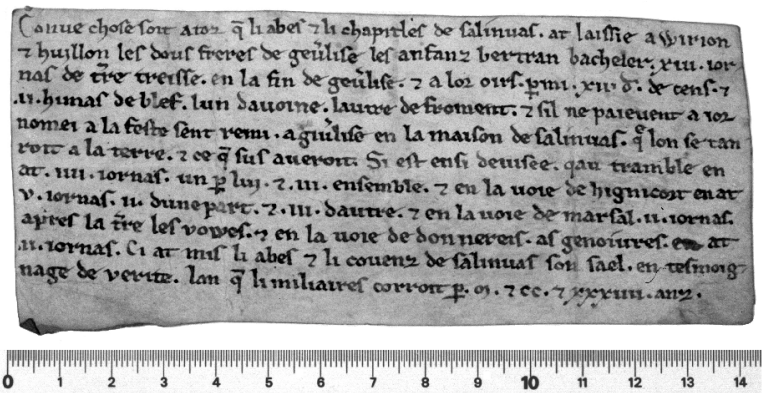 Conue chose soit a toz q̄ li abes ⁊ li chapitles de salinuas. at laissie a wirion
⁊ huillon les dous freres de geu̾lise les anfanz bertran bacheler. xiii. ior
nas de tr̄re treisse. en la fin de geu̾lise. ⁊ a lor oirs. ꝑmi. xii. d̓. de cens. ⁊
.ii. himas de blef. lun dauoine. lautre de froment. ⁊ sil ne paieuent a ior
nomei a la feste sent remi. a gu̾lise en la maison de salinuas. qͦ lon se tan
roit a la terre. ⁊ ce q̄ sus aueroit. Si est ensi deuisee. qau tramble en
at. iiii. iornas. un ꝑ lui. ⁊ .iii. ensemble. ⁊ en la uoie de hignicort en at
v. iornas. ii. dune part. ⁊ .iii. dautre. ⁊ en la uoie de marsal .ii. iornas.
apres la tr̄re les vowes. ⁊ en la uoie de donnereis. as genoiures. en at
.ii. iornas. Ci at mis li abes ⁊ li couenz de salinuas son sael. en tesmoig
nage de verite. lan q̄ li miliaires corroit ꝑ. m. ⁊ cc. ⁊ xxxiiii. anz.
0 1 2 3 4 5 6 7 8 9 10 11 12 13 14